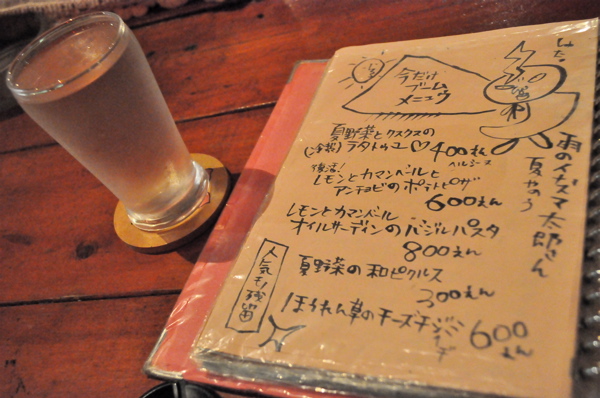 今だけ
ブーム
メニュウ
夏野菜とクスクスの
(冷製) ラタトゥユ♡400えん
ヘルシース
復活!
レモンとカマンベールと
アンチョビのポテトピザ
600えん
レモンとカマンベール
オイルサーディンのバジルパスタ
800えん
夏野菜の和ピクルス
300えん
ほうれん草のチーズチヂミ
600えん
人気モノ残留
雨のイナズマ太郎さん
夏やのう